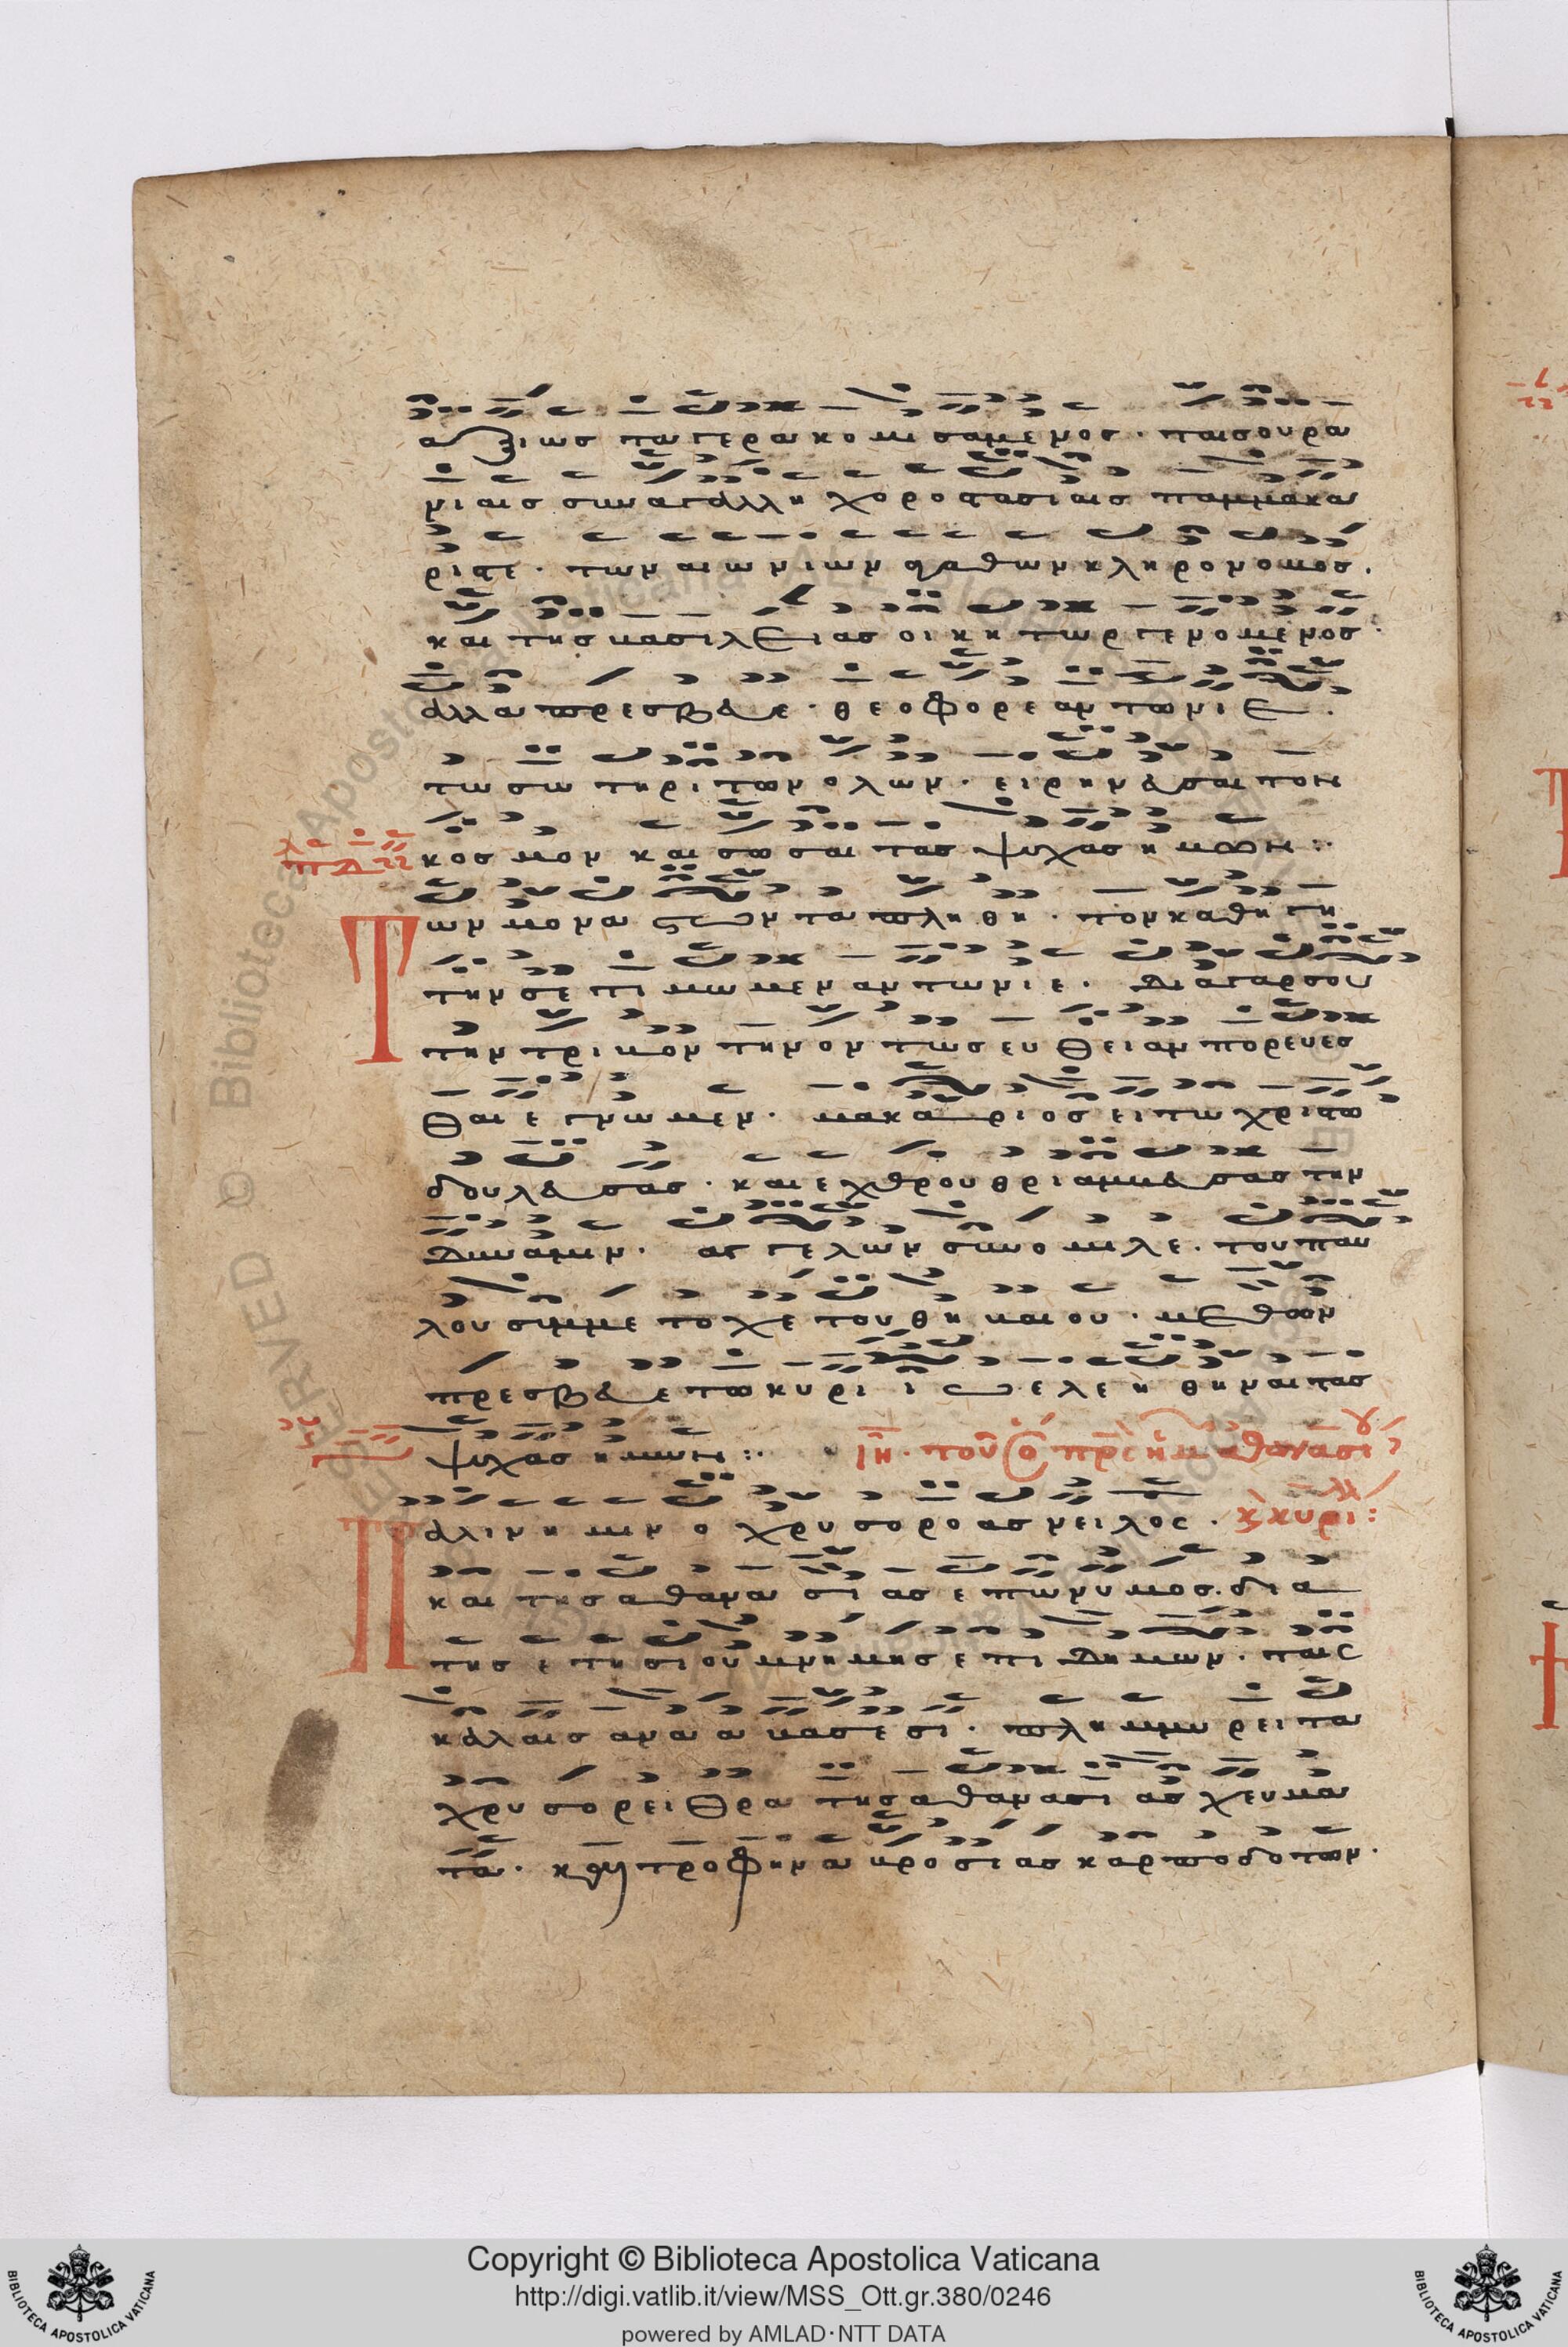 αξιως τα γερα κομισαμενος · ταις ουρα
νιαις συναγαλλη χοροστασιαις παμμακα
ριστε · των αιωνιων αγαθων κληρονομος ·
και της βασιλειας οικητωρ γενομενος ·
αλλα πρεσβευε · θεοφορε αντωνιε ·
τω σωτηρι των ολων · ειρηνευσαι τον
κοσμον και σωσαι τας ψυχας ημων :·
Των μοναστων τα πληθη · τον καθηγη
την σε τιμωμεν αντωνιε · δια γαρ σου
την τριβον την οντως ευθειαν πορευεσ
θαι εγνωμεν · μακαριος ει τω χριστω
δουλευσας · και εχθρου θριαμβευσας την
δυναμιν · αγγελων συνομιλε · του παυ
λου συμμετοχε του θηβαιου · μεθ ων
πρεσβευε τω κυριω ελεηθηναι τας
ψυχας ημων :·
ΙΗ · του ο πρς ημ αθανασι
κ κυρι :
Παλιν ημιν ο χρυσοροας νειλος ·
και της αθανασιας επωνυμος · δια
της ετησιου μνημης επιδημων · ταις
καλαις αναβασεσι · πλημμυρει τα
χρυσορειθρα της αθανασιας χευμα
τα · κ την τροφην αμβροσιας καρποδοτων ·
Copyright © Biblioteca Apostolica Vaticana
http://digi.vatlib.it/view/MSS_Ott.gr.380/0246
powered by AMLAD·NTT DATA
BIBLIOTECA APOSTOLICA VATICANA
BIBLIOTECA APOSTOLICA VATICANA